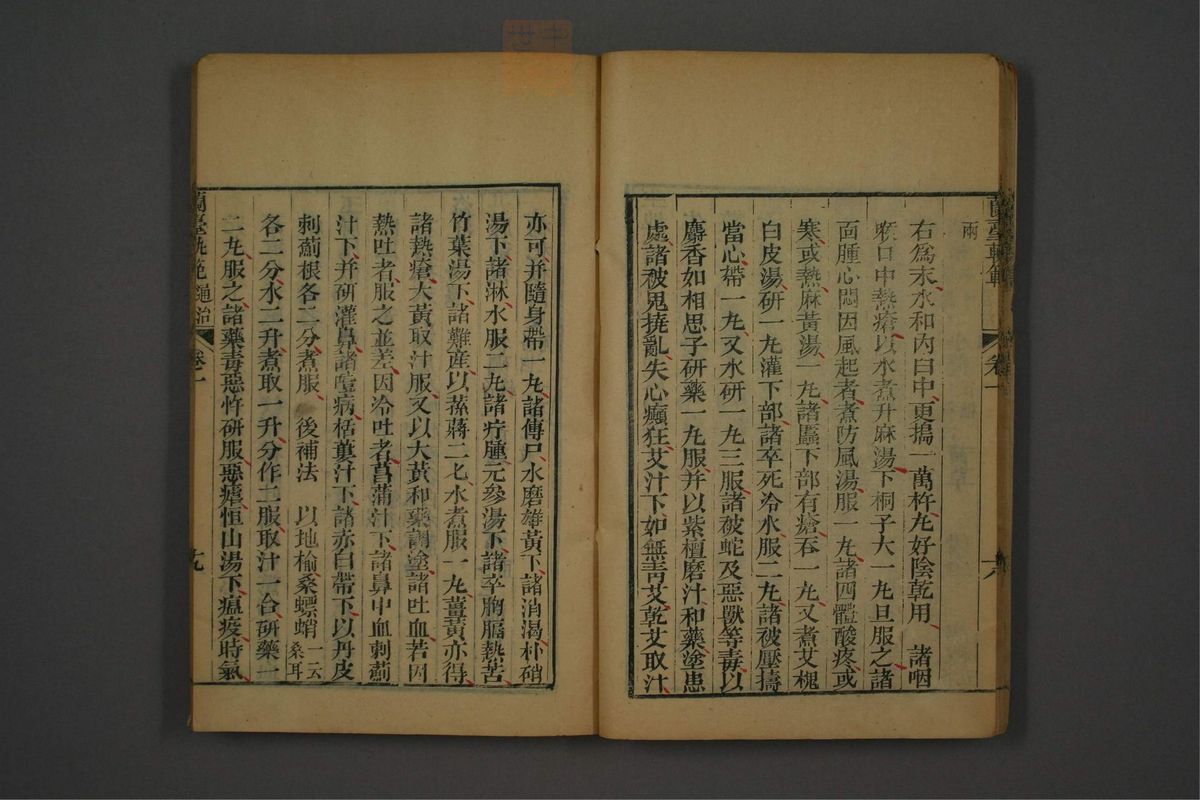 兩
右爲末水和內臼中更搗一萬杵丸好陰乾用　諸咽
喉口中熱瘡以水煮升麻湯下桐子大一丸旦服之諸
面腫心悶因風起者煮防風湯服一丸諸四體酸疼或
寒或熱麻黃湯一丸諸䘌下部有瘡吞一丸又煮艾槐
白皮湯研一丸灌下部諸卒死冷水服二丸諸被壓擣
當心帶一丸又水研一丸三服諸被蛇及惡獸等毒以
麝香如相思子研藥一丸服并以紫檀磨汁和藥塗患
處諸被鬼撓亂失心癲狂艾汁下如無靑艾乾艾取汁
卷一
亦可并隨身帶一丸諸傳尸水磨雄黃下諸消渴朴硝
湯下諸淋水服二丸諸疔腫元參湯下諸卒胸膈熱苦
竹葉湯下諸難產以蒺蔾二七水煮服一丸薑黃亦得
諸熱瘡大黃取汁服又以大黃和藥調塗諸吐血若因
熱吐者服之並差因冷吐者菖蒲汁下諸鼻中血刺薊
汁下并研灌鼻諸噎病栝蔞汁下諸赤白帶下以丹皮
刺薊根各二分煮服　後補法　以地榆桑螵蛸一云桑耳
各二分水二升煮取一升分作二服取汁一合研藥一
二丸服之諸藥毒惡忤研服惡瘧恒山湯下瘟疫時氣
蘭臺軌範 通治 卷一 十九